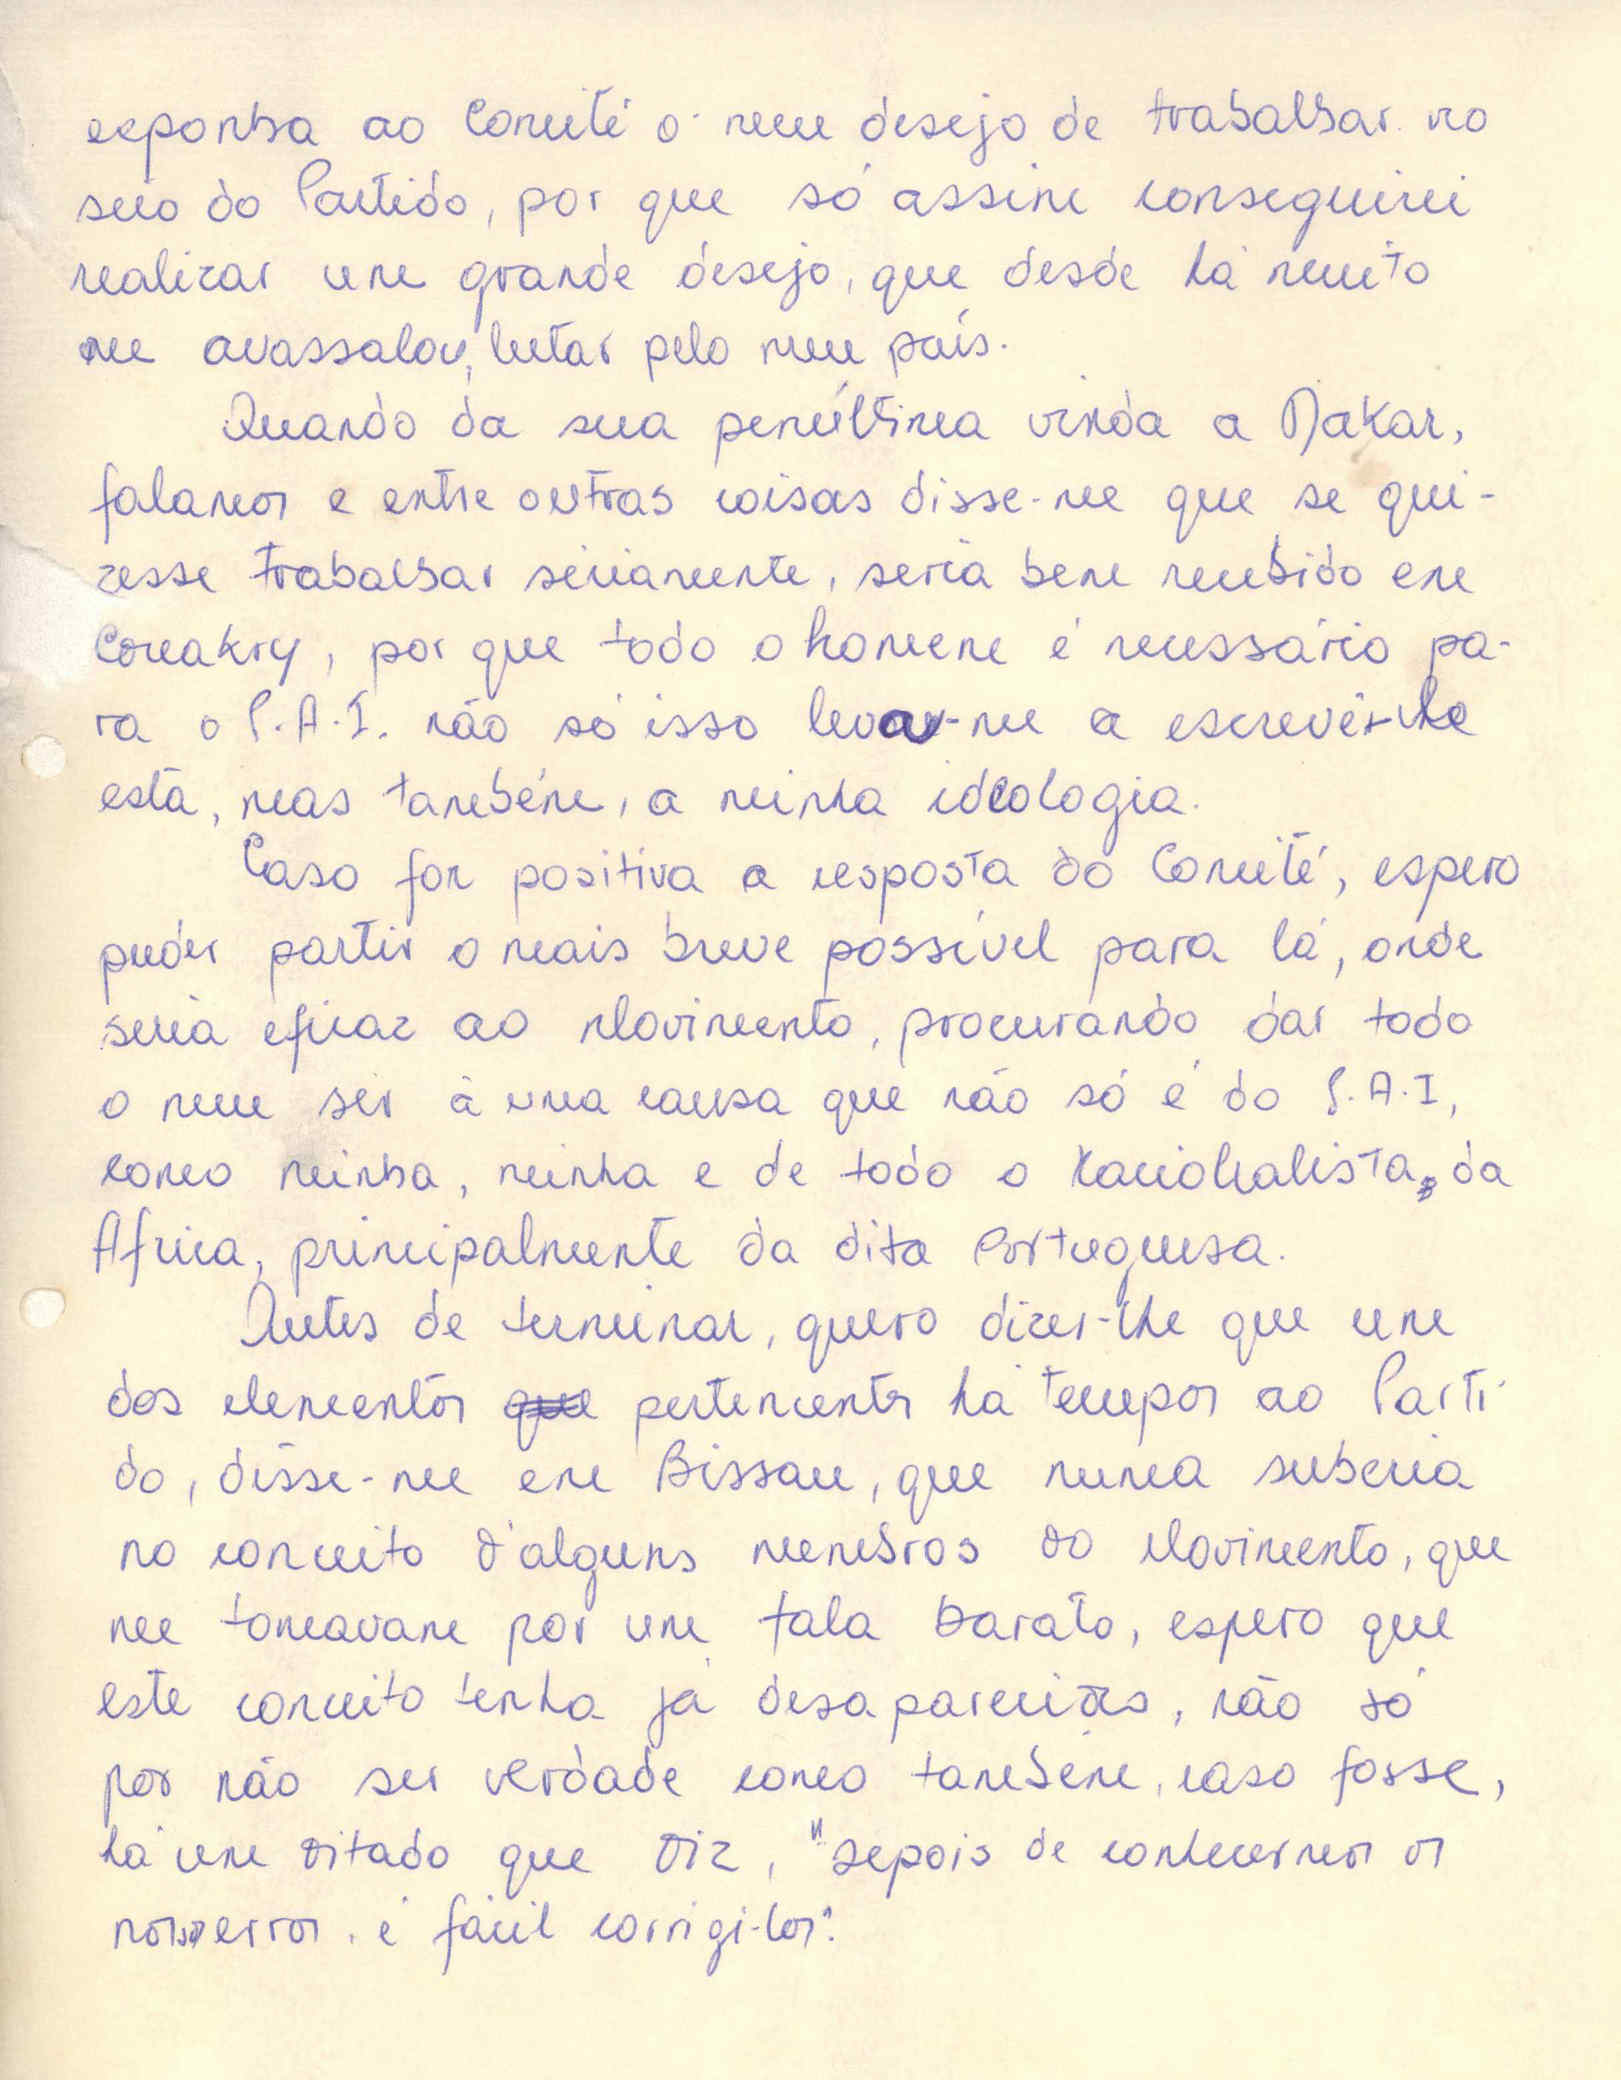 exponha ao Comité o meu desejo de trabalhar no
seio do Partido, por que só assim conseguirei
realizar um grande desejo, que desde há muito
me avassalou, lutar pelo meu país.
Quando da sua penúltima vinda a Dakar,
falamos e entre outras coisas disse-me que se qui-
zesse trabalhar seriamente, seria bem recebido em
Conakry, por que todo o homem é necessário pa-
ra o P.A.I. não só isso levou-me a escrever-lhe
está, mas também, a minha ideologia.
Caso for positiva a resposta do Comité, espero
puder partir o mais breve possível para lá, onde
seria eficaz ao Movimento, procurando dar todo
o meu sêr à uma causa que não só é do P.A.I,
como minha, minha e de todo o Nacionalista, da
Africa, principalmente da dita Portuguesa.
Antes de terminar, quero dizer-lhe que um
dos elementos que pertencentes há tempos ao Parti-
do, disse-me em Bissau, que nunca suberia
no conceito d'alguns membros do Movimento, que
me tomavam por um fala barato, espero que
este conceito tenha já desaparecido, não só
por não ser verdade como também, caso fosse,
há um ditado que diz, "depois de conhecermos os
nossos erros, é fácil corrigi-los".